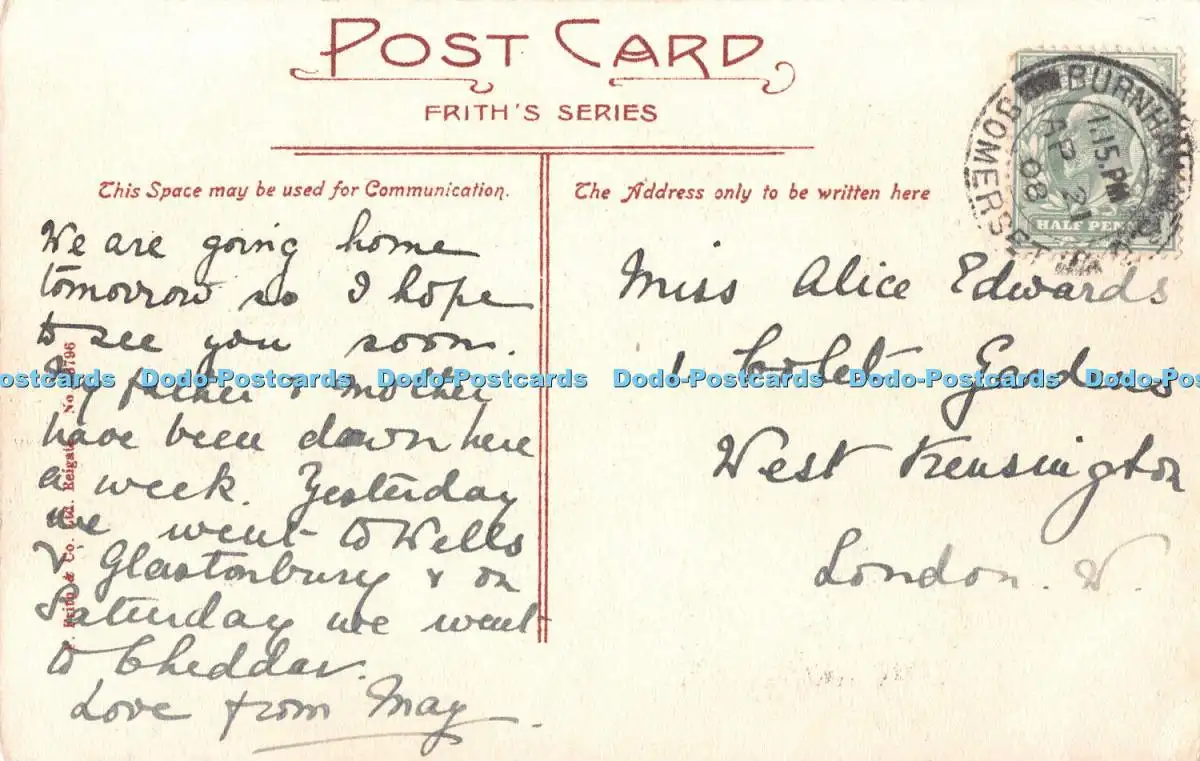 POST CARD
FRITH'S SERIES
This Space may be used for Communication.
The Address only to be written here
BURNHAM
SOMERSET
1.15 PM
AP 21
08
HALF PENNY
We are going home
tomorrow so I hope
to see you soon.
My father & mother
have been down here
a week. Yesterday
we went to Wells
& Glastonbury & on
Saturday we went
to Cheddar.
Love from May
Miss Alice Edwards
1 Colet Gardens
West Kensington
London. W.
F. Frith & Co. Ltd. Reigate No.
Dodo-Postcards Dodo-Postcards Dodo-Postcards Dodo-Postcards Dodo-Postcards Dodo-Postcards